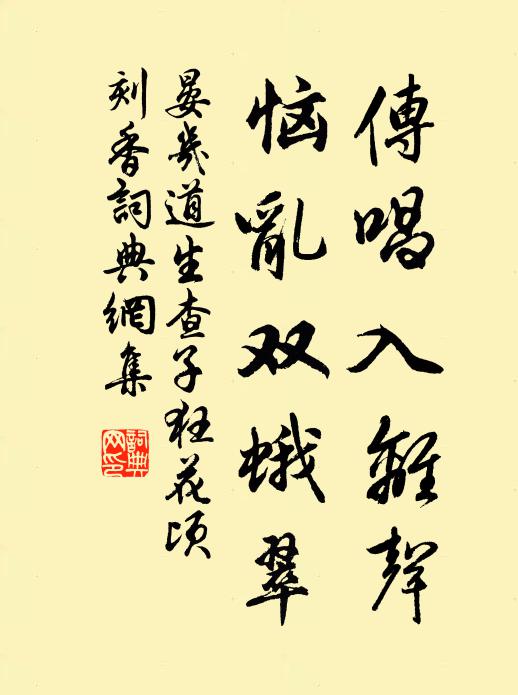 傳唱入離聲
惱亂双蛾翠
晏幾道生查子狂花頃
刻香詞典網集
詞典網印